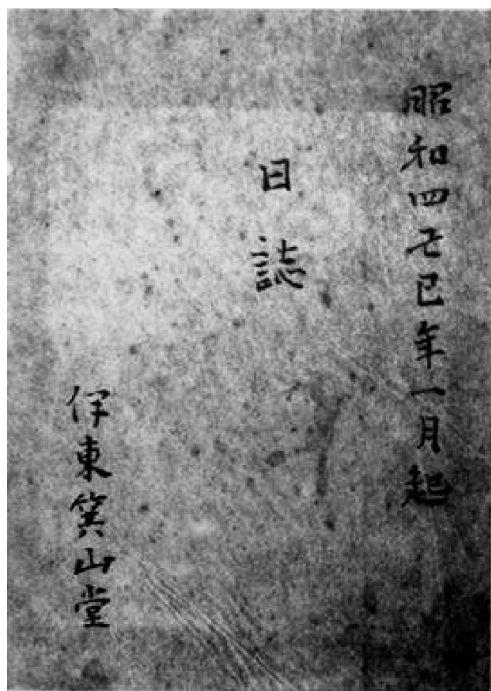 昭和四己巳年一月起
日誌
伊東箕山堂